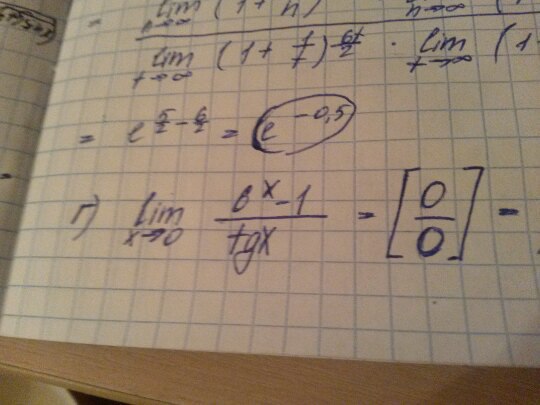 = lim n→∞ (1+ n) n→∞ (1
lim t→∞ (1+ 1/t)^6t/2 · lim t→∞ (1
= e^5/2 - 6/2 = e^-0,5
г) lim x→0 6^x-1 / tgx = [0/0] =